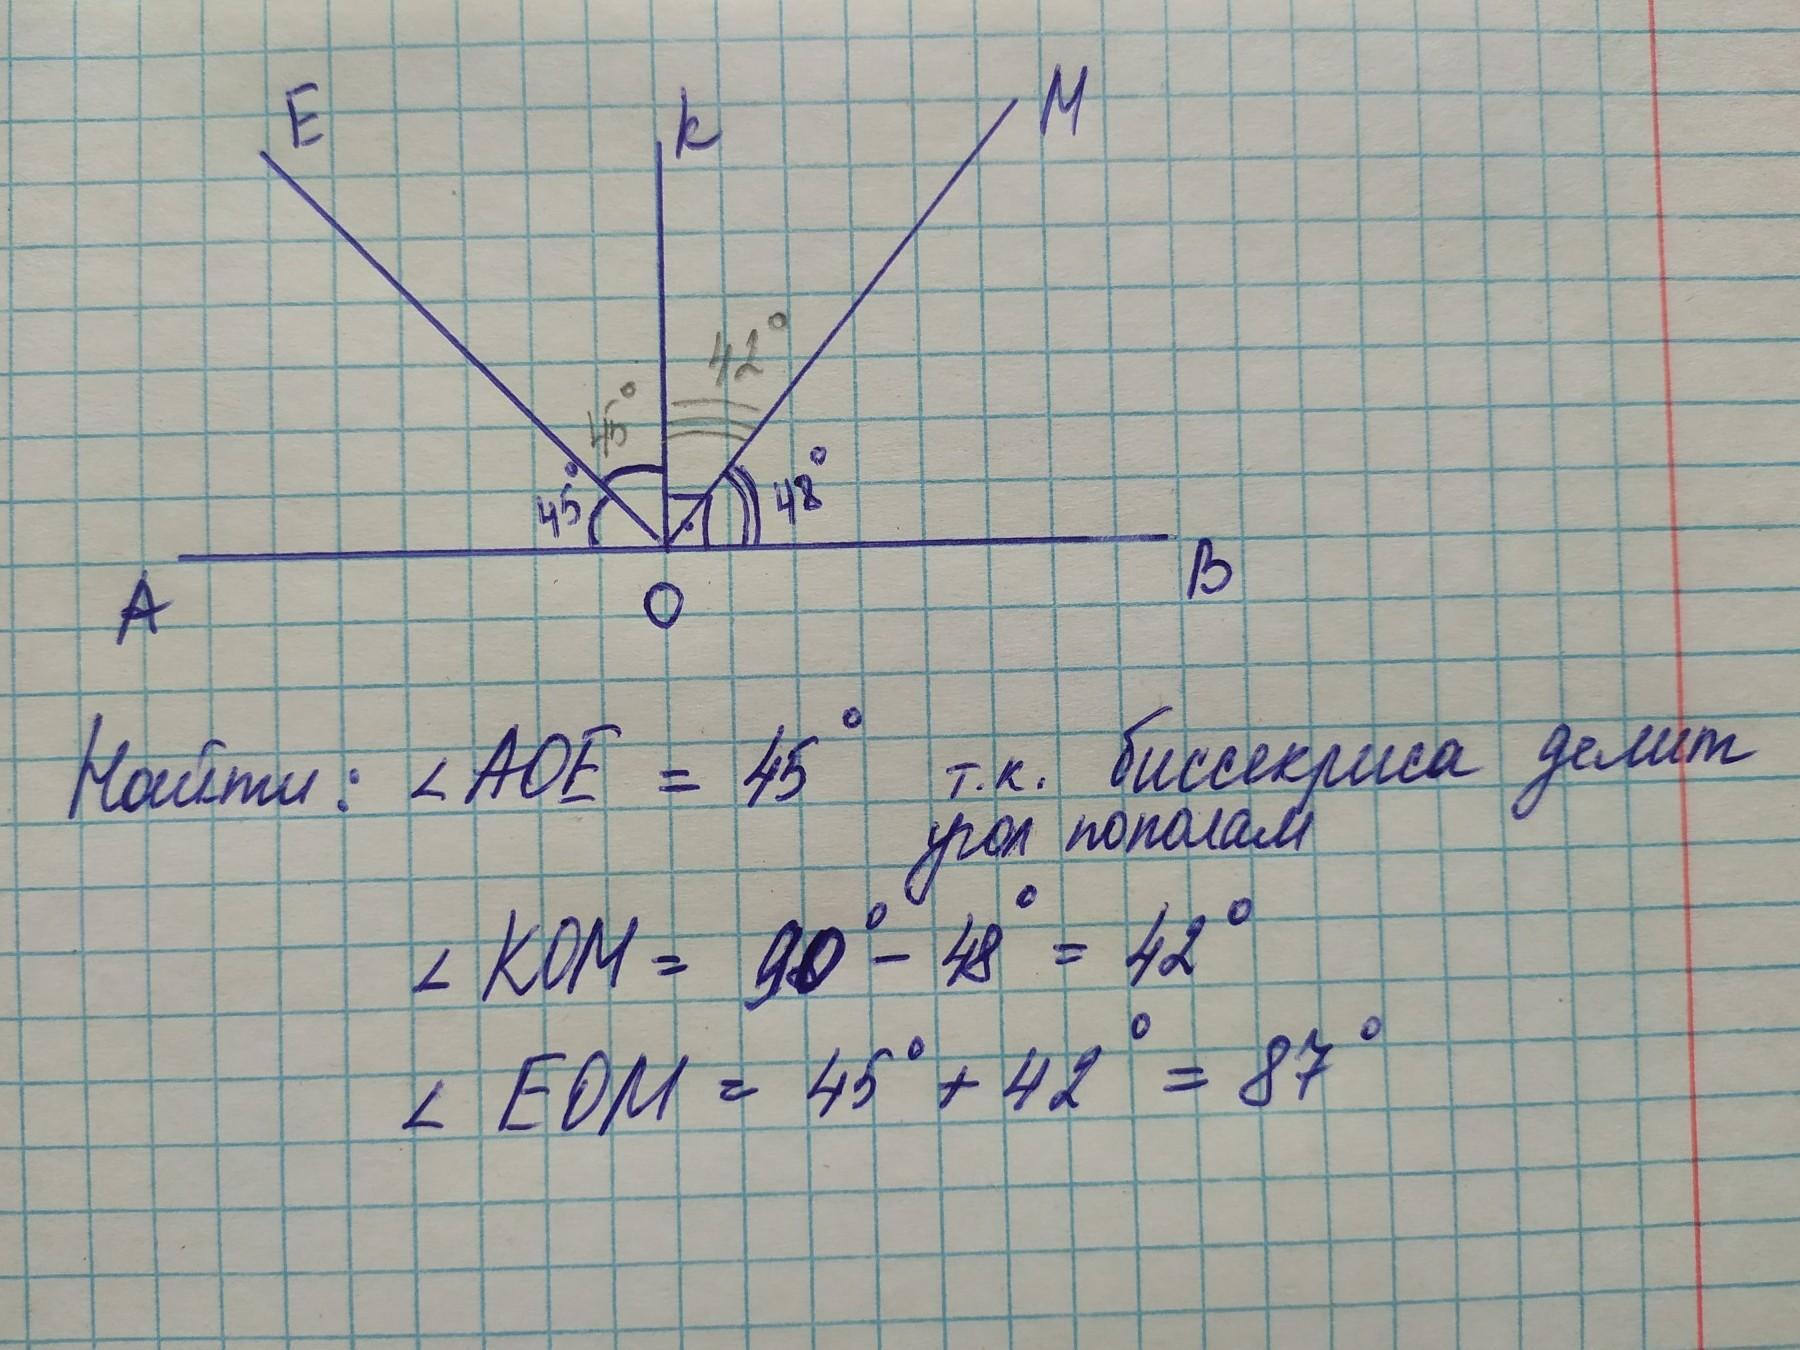 E K M
42°
45°
45° 48°
A O B
Найти: ∠AOE = 45° т.к. биссекриса делит
угол пополам
∠KOM = 90° - 48° = 42°
∠EOM = 45° + 42° = 87°